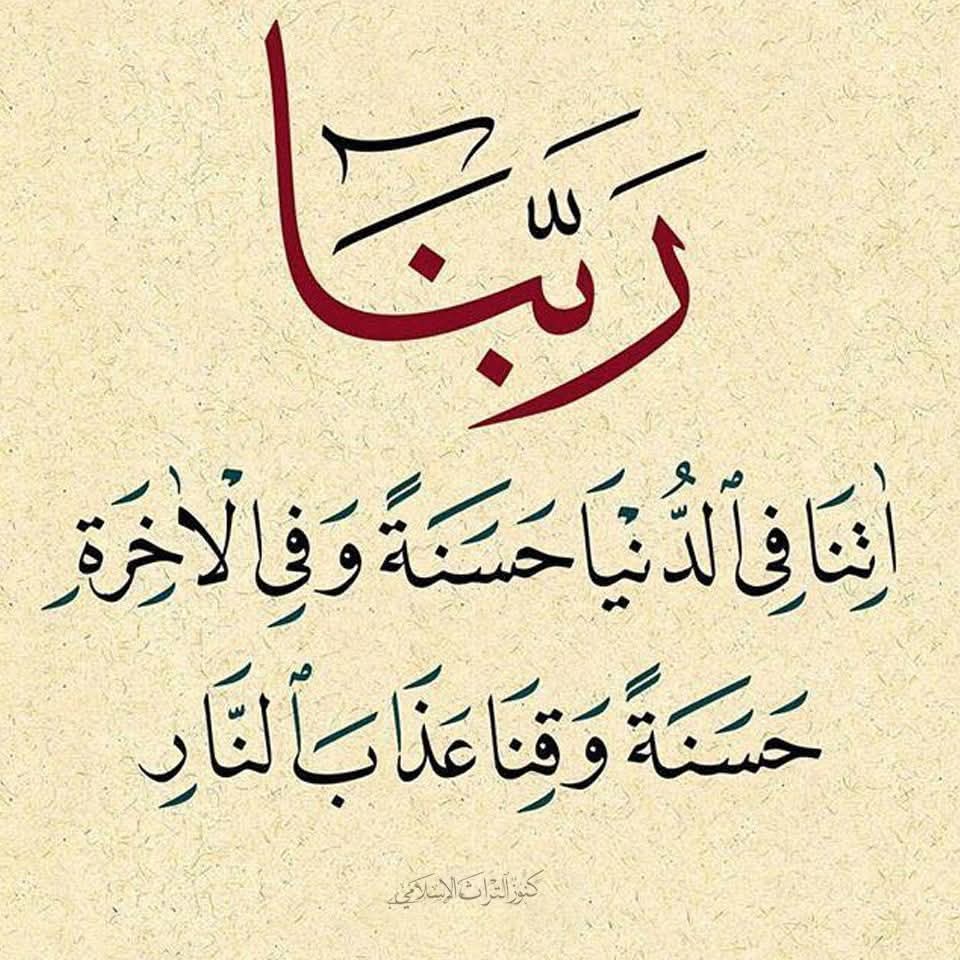 رَبَّنَآ
اٰتِنَا فِى ٱلدُّنْيَا حَسَنَةً وَفِى الْاٰخِرَةِ
حَسَنَةً وَقِنَا عَذَابَ ٱلنَّارِ
كنوز التراث الإسلامي